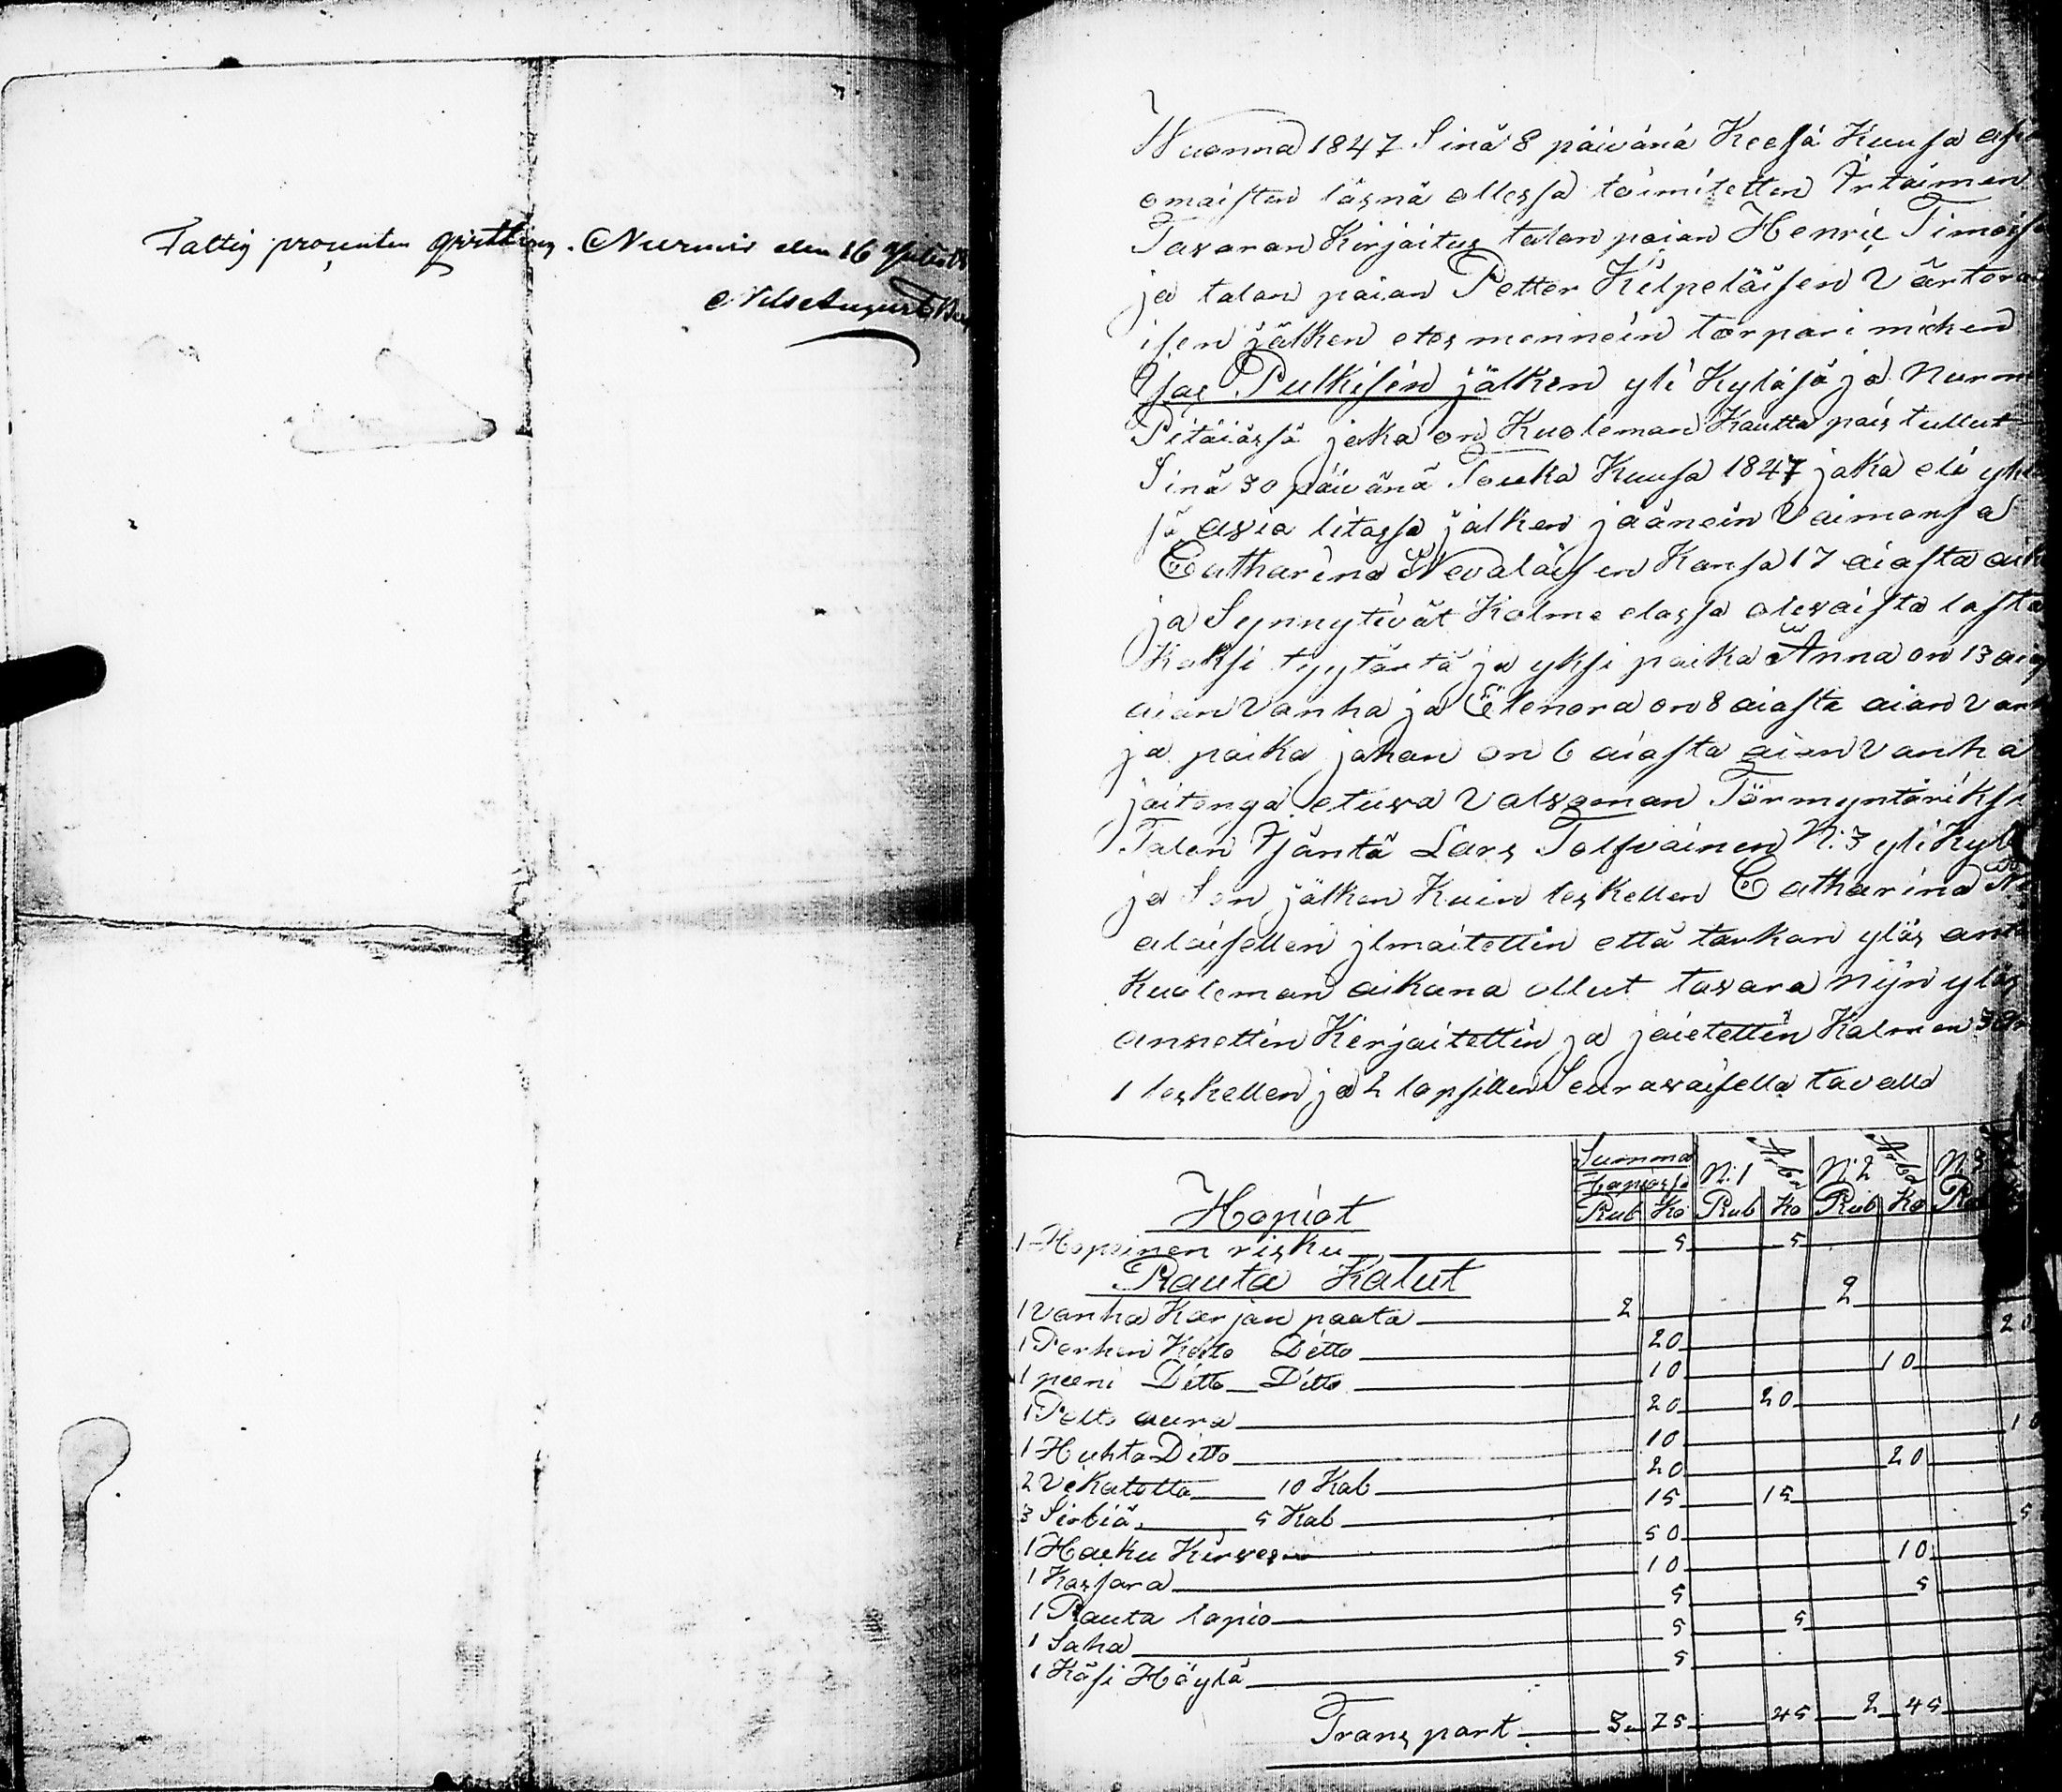 Fattig procenten qvitteras. Nurmis den 16
Nils August
Wuonna 1847 Sinä 8 päiwänä Keesä Kuusa
omaisten läsnä ollessa toimitettin Irtaimen
Tavaran Kirjaitus talon poian Henric Timois
ja talon poian Petter Kilpeläisen Värtora
isen jälken etes mennein torpari miehen
Isac Pulkisen jälken yli Kyläsä ja Nurm
Pitäiässä joka on Kuoleman Kautta pois tullut
Sinä 30 päivänä Touko Kuusa 1847 joka eli yh
sä avio litossa jälken jäänein Vaimonsa
Catharina Nevalaisen Kansa 17 aiasta
ja Synnytivät Kolme elossa olevaista lasta
Kaksi tyytärtä ja yksi poika Anna on 13
aian vanha ja Elenora on 8 aiasta aian van
ja poika johan on 6 aiasta aian vanha
joitenga etuva Valvoman Förmyntäriksi
Talon Isäntä Lars Tolfvainen N:3 yli Kyl
ja Sen jälken Kuin leskellen Catharina
alaisellen jlmoitettin että tarkan ylös
Kuoleman aikana ollut tavara nijn ylös
annettin Kirjoitettin ja jaietettin Kolmen
1 leskellen ja 2 lapsillen Seuravaisella tavalla
Summa Hopiassa N:1 Arba N:2 Arba N:3
Hopiat Rub Ko Rub Ko Rub Ko
1 Hopeinen risku 5 5
Rauta Kalut
1 Vanha Karjan paata 2 2
1 Perhen Keito Ditto 20 20
1 pieni Ditto Ditto 10 10
1 Pelto aura 20 20
1 Huhta Ditto 10 10
2 Vikatetta 10 Kob 20 20
3 Sirbiä 5 Kob 15 15
1 Hacku Kirves 50 5
1 Kassara 10 10
1 Rauta lapio 5 5
1 Saha 5 5
1 Käsi Höylä 5
Transport 3 75 45 2 45